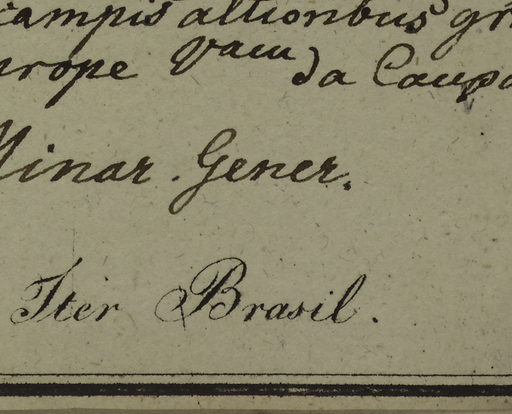 campis altionbus gr
prope Vau da Caup
Minar. Gener.
Iter Brasil.